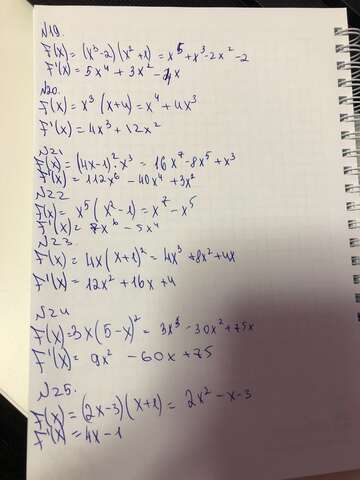 N19.
F(x) = (x³-2)(x²+1) = x⁵+x³-2x²-2
F'(x) = 5x⁴ + 3x² - 4x
N20.
F(x) = x³(x+4) = x⁴+4x³
F'(x) = 4x³+12x²
N21
F(x) = (4x-1)²·x³ = 16x⁷-8x⁵+x³
F'(x) = 112x⁶ - 40x⁴ + 3x²
N22
F(x) = x⁵(x²-1) = x⁷-x⁵
F'(x) = 7x⁶ - 5x⁴
N23.
F(x) = 4x(x+1)² = 4x³+8x²+4x
F'(x) = 12x²+16x+4
N24
F(x) = 3x(5-x)² = 3x³-30x²+75x
F'(x) = 9x² -60x+75
N25.
F(x) = (2x-3)(x+1) = 2x²-x-3
F'(x) = 4x-1